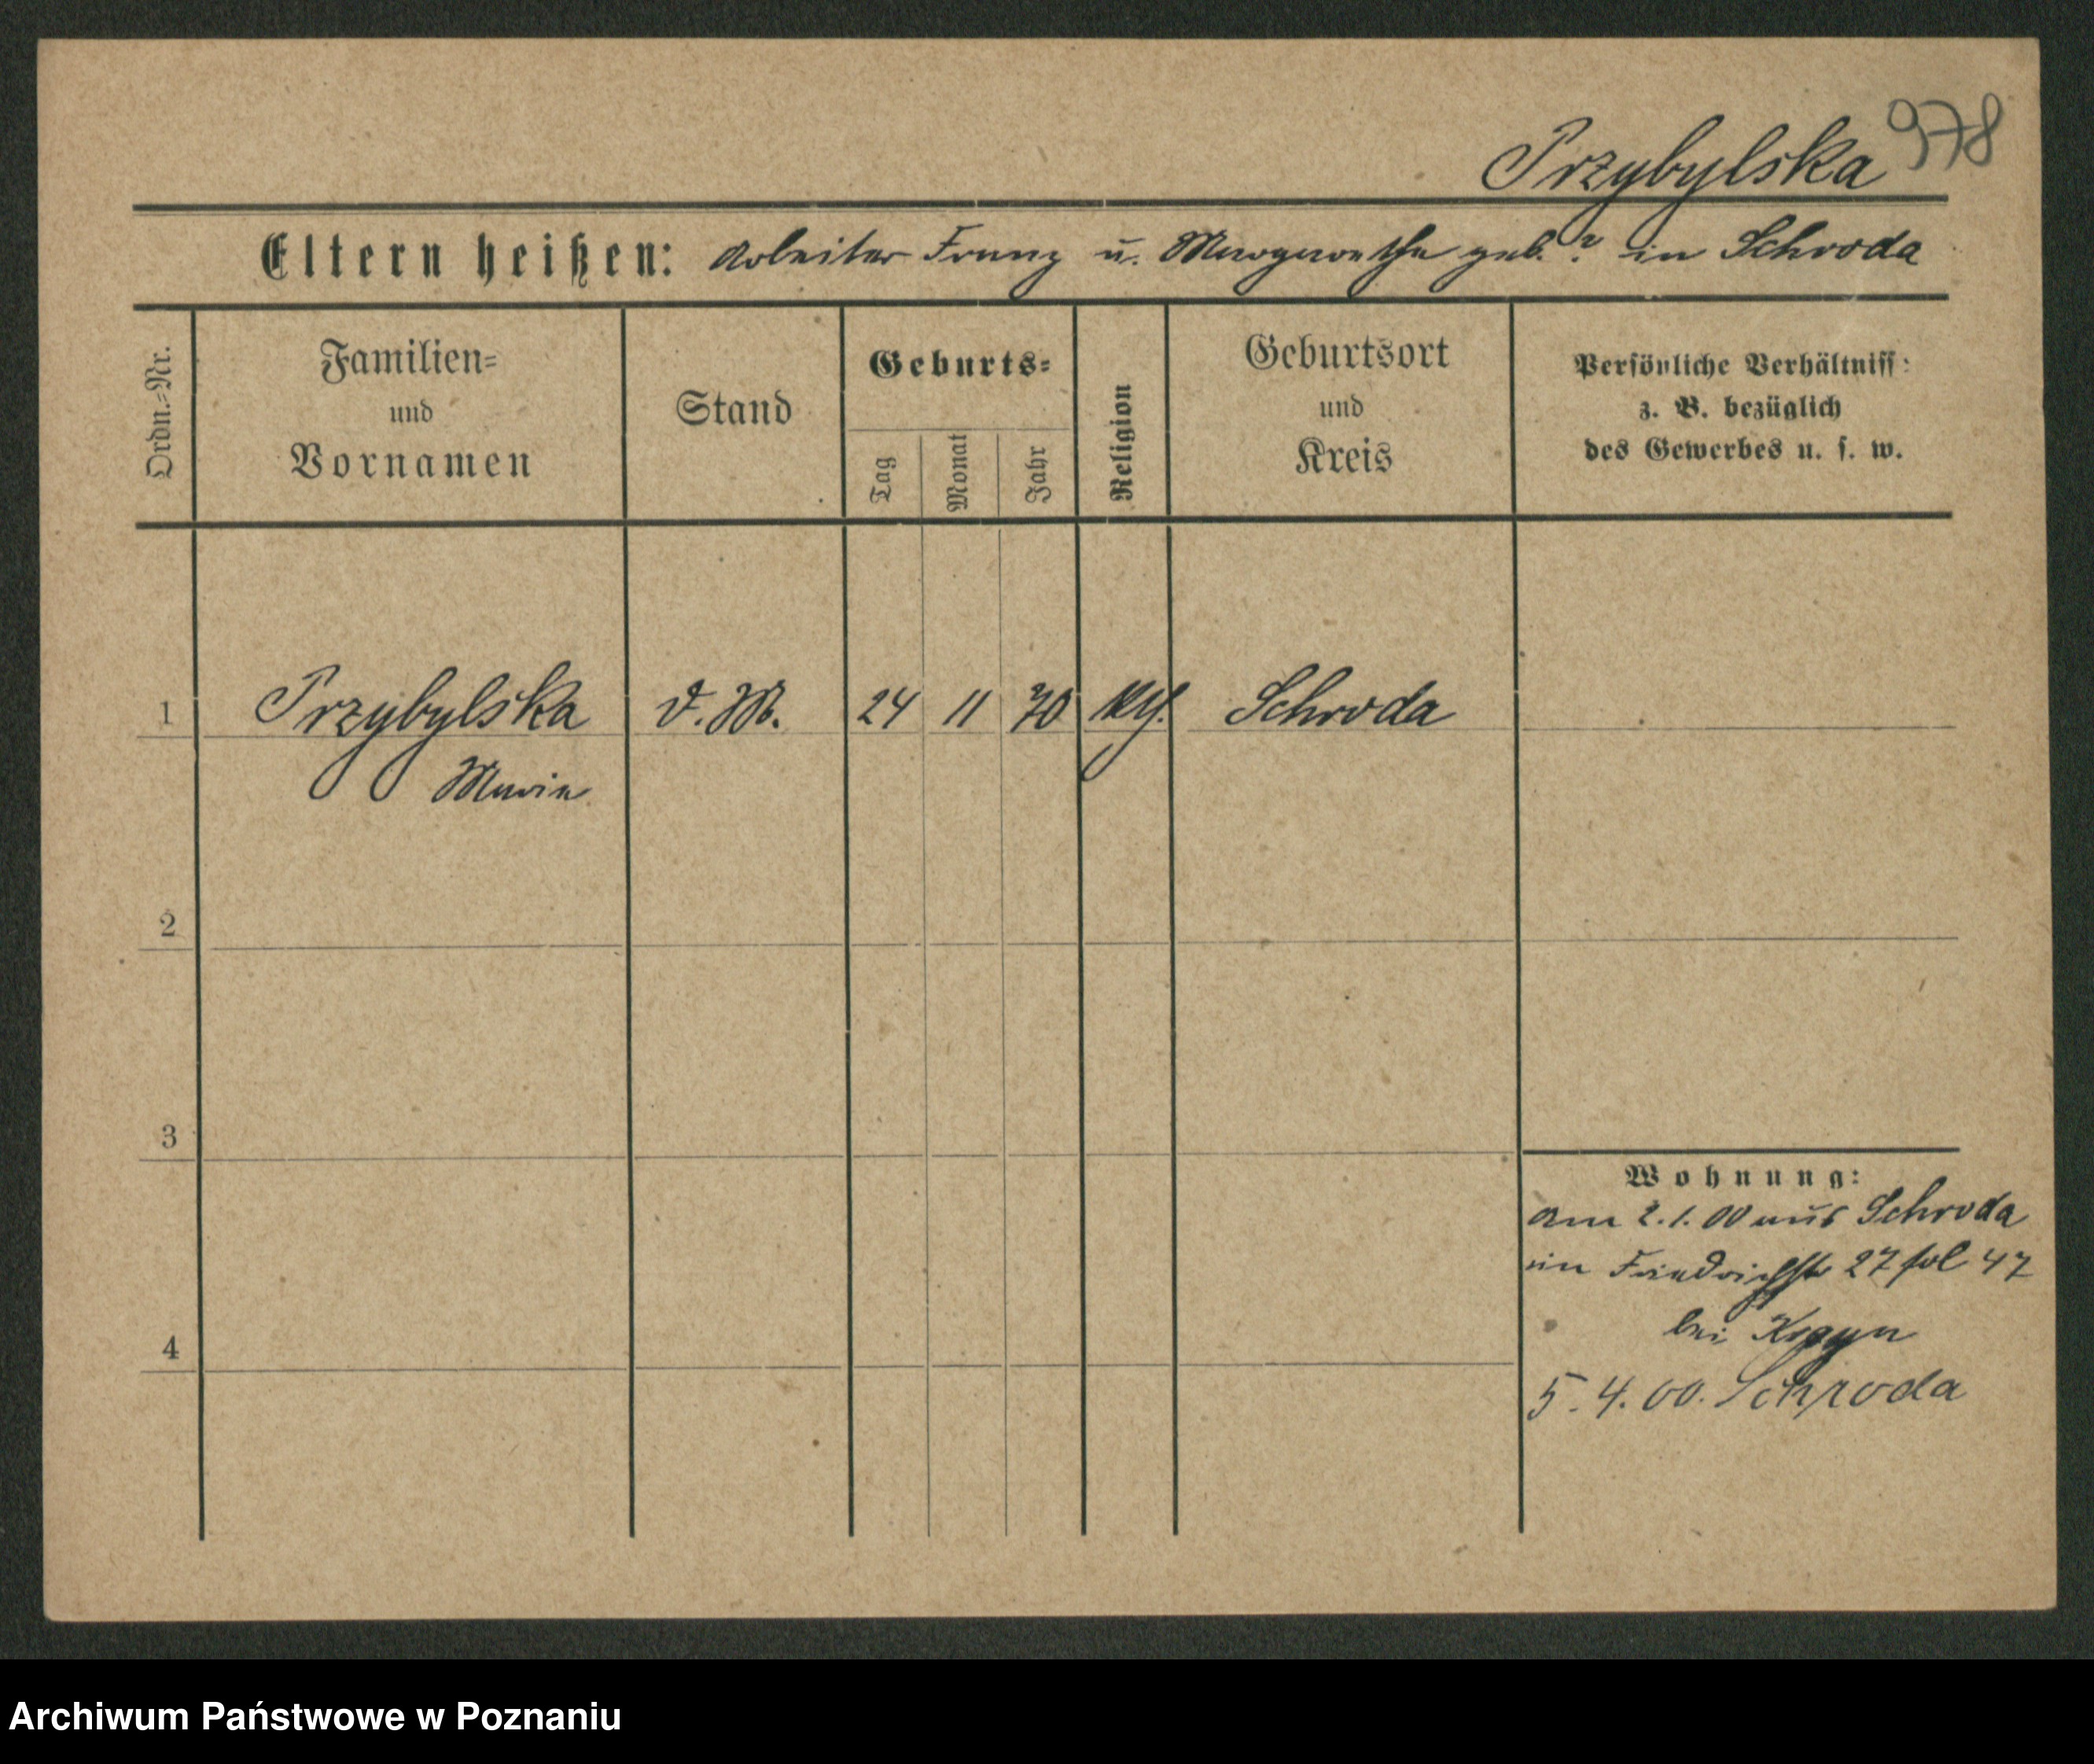 Przybylska 978
Eltern heißen: Arbeiter Franz u. Margarethe geb. ? in Schroda
Ordn.-Nr.
Familien-
und
Vornamen
Stand
Geburts-
Tag
Monat
Jahr
Religion
Geburtsort
und
Kreis
Persönliche Verhältniss:
z. B. bezüglich
des Gewerbes u. s. w.
1 Przybylska D. M. 24 11 70 kth. Schroda
Marie
2
3
Wohnung:
am 2.1.00 aus Schroda
in Friedrichstr 27 fol 47
bei
4
5.4.00. Schroda
Archiwum Państwowe w Poznaniu